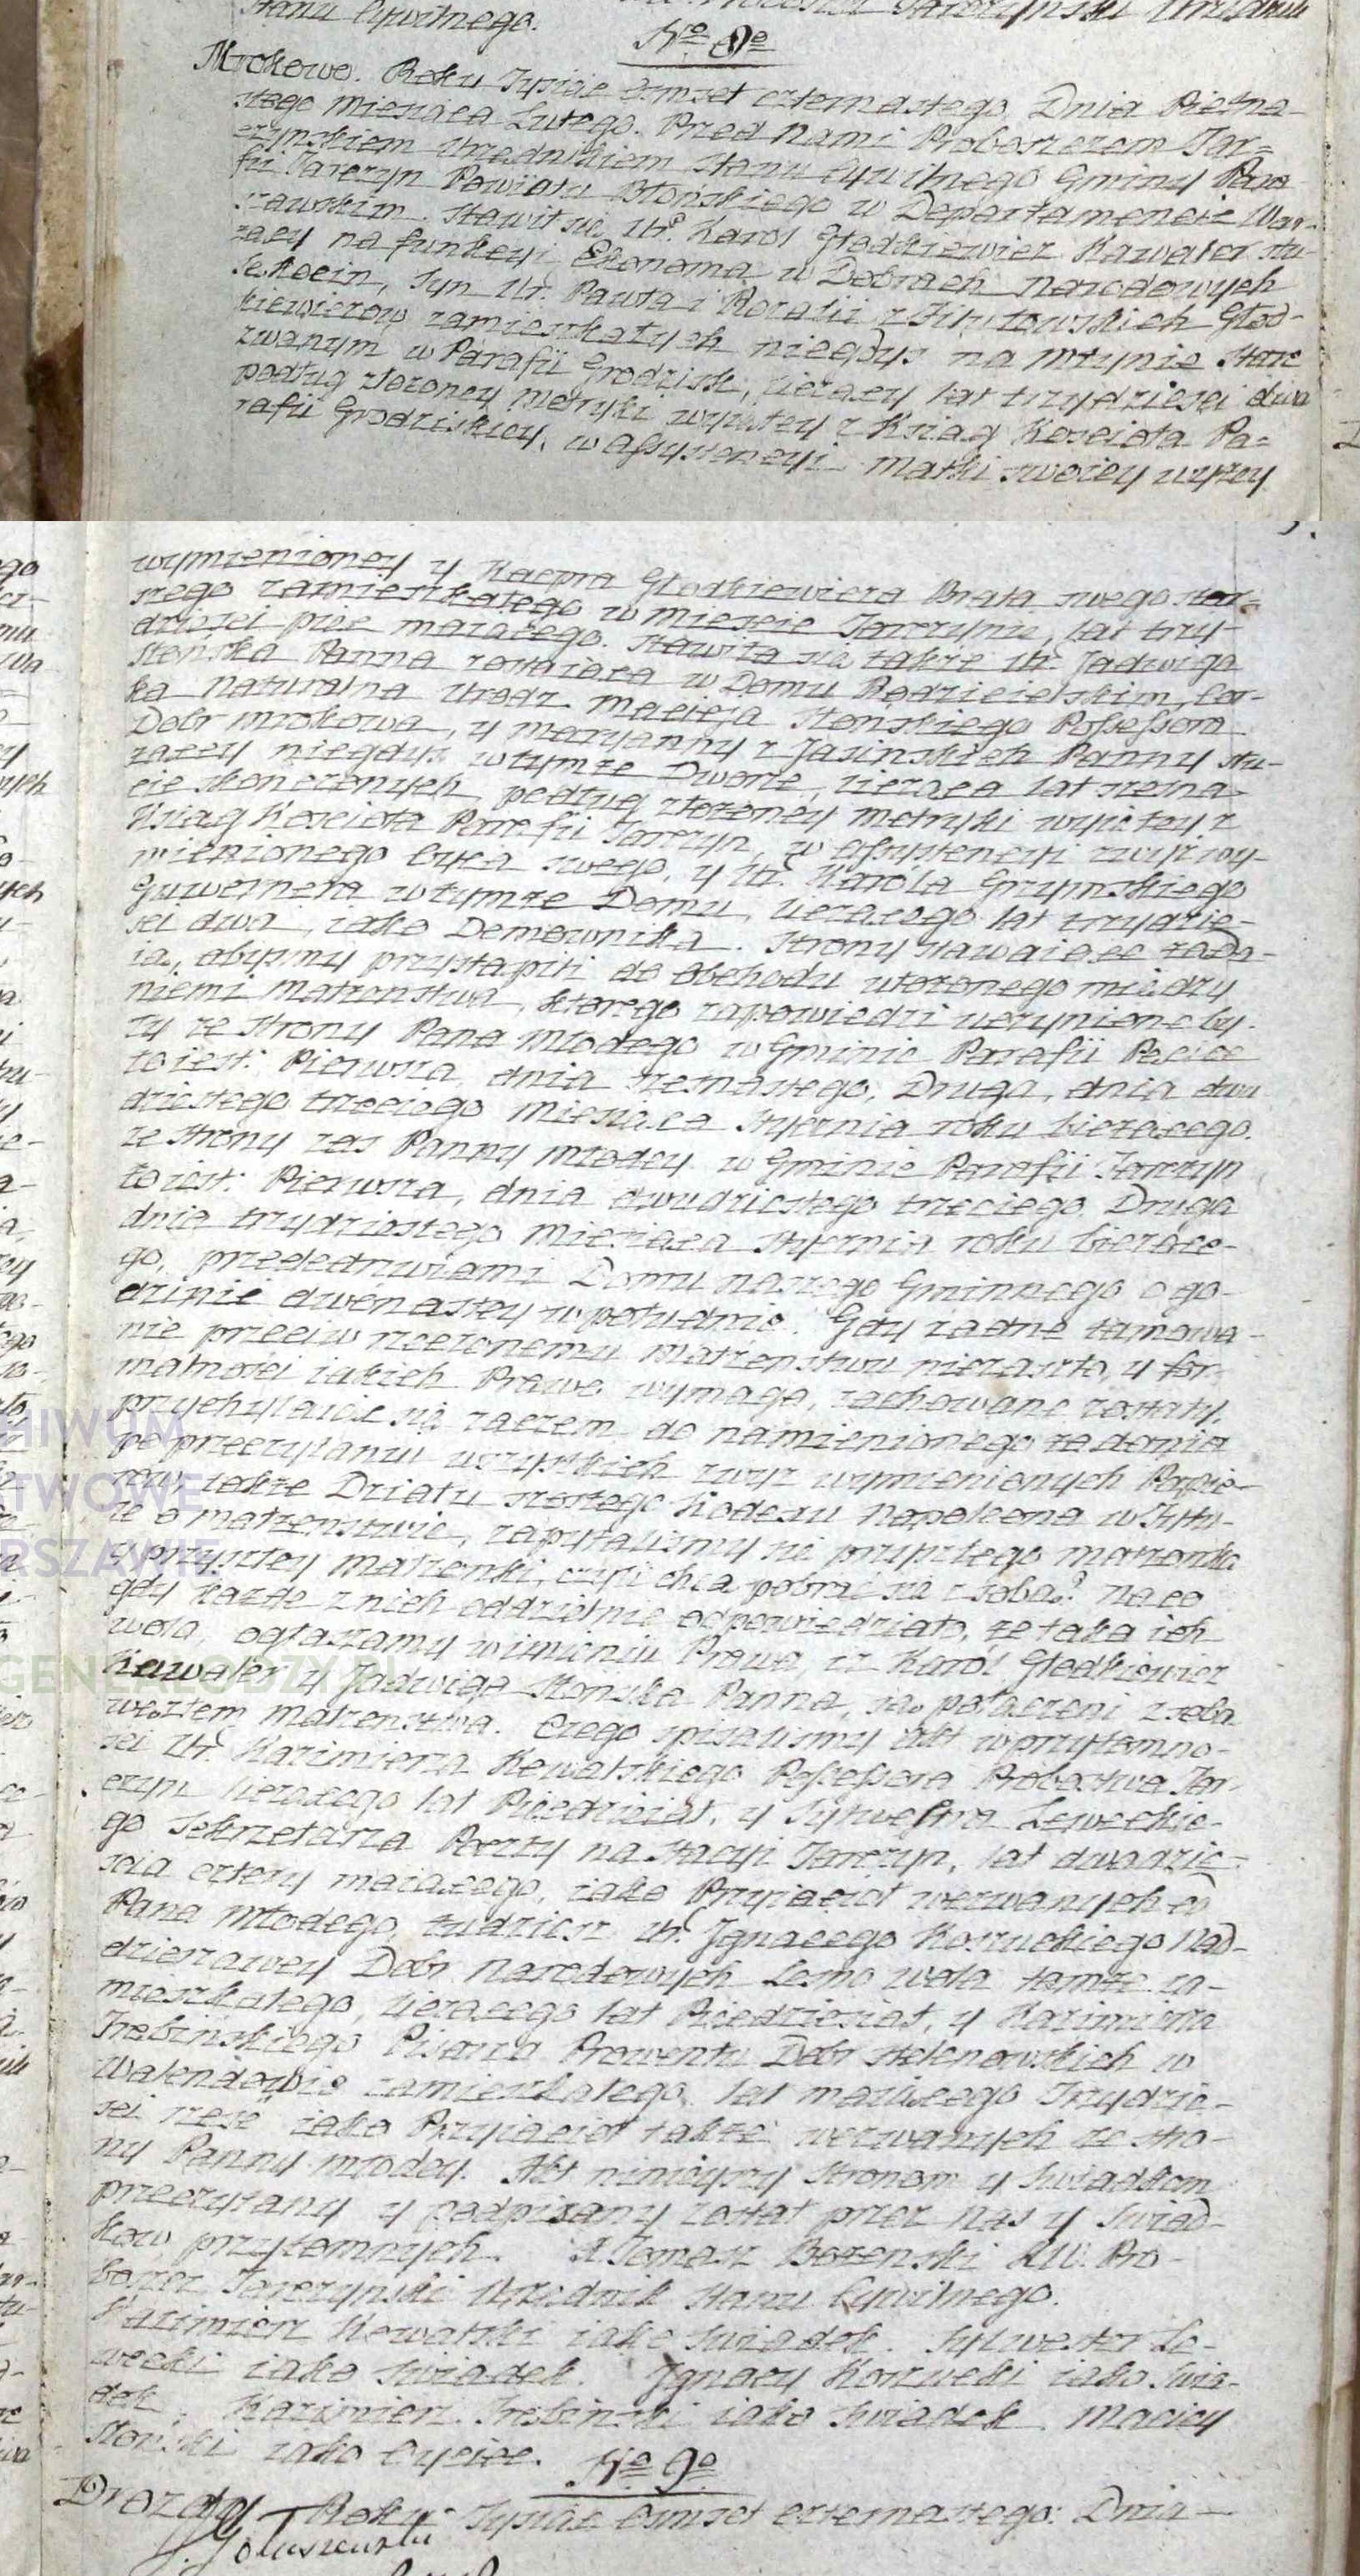 Stanu Cywilnego.
No 8o
Mrokowo. Roku Tysiąc Osmset czternastego, Dnia Piętna-
stego Miesiąca Lutego. Przed Nami Proboszczem Tar=
czynskiem Urzędnikiem Stanu Cywilnego Gminy Para
fii Tarczyn Powiatu Błońskiego w Departamencie War-
szawskim. Stawił się Ur. Karol Głodkiewicz Kawaler słu-
żący na funkcyi Ekonoma w Dobrach Narodowych
Sękocin, Syn Ur. Pawła i Rozalii z Głod-
kiewiczow zamieszkałych niegdyś na Młynie Stare
zwanym w Parafii Grodzisk, liczący lat trzydzieści dwa
podług złożoney Metryki wyjętey z Ksiąg Kościoła Pa=
rafii Grodziskiey, w assystencyi Matki swoiey wyżey
wymienioney y Kacpra Głodkiewicza Brata swego star=
szego zamieszkałego w Mieście Tarczynie, lat trzy-
dzieści pięć maiącego. Stawiła się także Ur. Jadwiga
Słońska Panna zostaiąca w Domu Rodzicielskim, Cor-
ka Naturalna Urodz. Macieja Słońskiego Possessora
Dobr Mrokowa, y Maryanny z Jasinskich Panny słu-
żącey niegdyś w tymże Dworze, licząca lat szesna-
cie skonczonych, podług złożoney Metryki wyjętey z
Ksiąg Kościoła Parafii Tarczyn, w assystencyi zwyż wy-
mienionego Oyca swego, y Ur. Karola Grzymskiego
Guwernera w tymże Domu, liczącego lat trzydzie-
ści dwa, iako Domownika. Strony stawaiące żąda-
ią, abyśmy przystąpili do obchodu ułożonego między
niemi Małżenstwa, ktorego zapowiedzi uczynione by-
ły ze strony Pana Młodego w Gminie Parafii Pęcice
to iest: Pierwsza, dnia szesnastego, Druga, dnia dwu
dziestego trzeciego Miesiąca Stycznia roku bieżącego.
ze strony zaś Panny młodey w Gminie Parafii Tarczyn
to iest: Pierwsza, dnia dwudziestego trzeciego, Druga
dnia trzydziestego Miesiąca Stycznia roku bieżące-
go, przede drzwiami Domu naszego Gminnego o go-
dzinie dwenastey w południe. Gdy żadne tamowa-
nie przeciw rzeczonemu Małżenstwu niezaszło, y for-
malności iakich Prawo wymaga, zachowane zostały,
przychylaiąc się zaczem, do namienionego żądania
po przeczytaniu wszystkich zwyż wymienionych Papie-
row, także Działu szostego Kodexu Napoleona w Tytu-
le o małżenstwie, zapytaliśmy się przyszłego małżonka
y przyszłey małżonki, czyli chcą pobrać się z sobą? Na co
gdy każde z nich oddzielnie odpowiedziało, że taka ich
wola, ogłaszamy w imieniu Prawa, iż Karol Głodkiewicz
Kawaler y Jadwiga Słonska Panna, są połączeni z sobą
węzłem małżenstwa. Czego spisaliśmy akt w przytomno-
ści Ur. Kazimierza Kowalskiego Possessora Probostwa Tar-
czyn liczącego lat Pięcdziesiąt, y Sylwestra Leweckie-
go Sekretarza Poczty na Stacyi Tarczyn, lat dwadzie-
ścia cztery maiącego, iako Przyiacioł wezwanych od
Pana Młodego, tudzież Ur. Ignacego Koszuckiego Nad-
dzierzawcy Dobr Narodowych Lesno wola tamże za-
mieszkałego, liczącego lat Pięcdziesiąt, y Kazimierza
Trebinskiego Pisarza Prowentu Dobr Helenowskich w
Walendowie zamieszkałego, lat maiącego Trzydzie-
ści szesć iako Przyiacioł także wezwanych ze stro-
ny Panny młodey. Akt ninieyszy Stronom y Swiadkom
przeczytany y podpisany został przez Nas y Swiad-
kow przytomnych. X Tomasz Pro-
boszcz Tarczynski Urzędnik Stanu Cywilnego.
Kazimierz Kowalski iako Swiadek. Sylwester Le-
wecki iako Swiadek. Ignacy Koszucki iako Swia-
dek. Kazimierz Trebinski iako Swiadek. Maciey
Słonski iako Oyciec.
No 9o
Drozdy Roku Tysiąc Osmset czternastego: Dnia